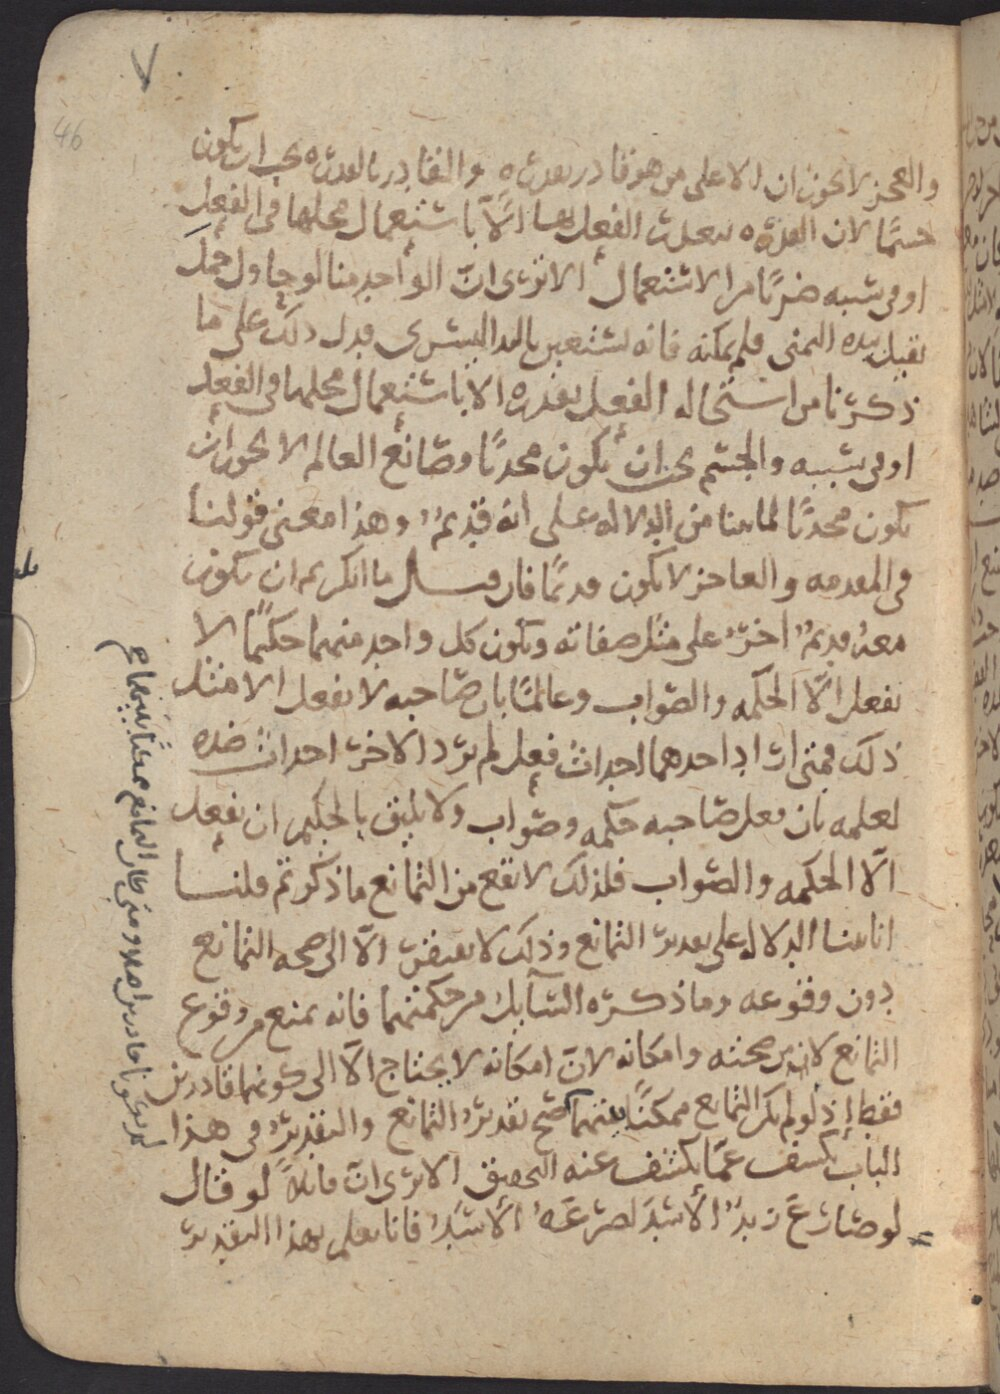 ٧
46
والعجز لا يجوزان الا على من هو قادر بقدرة والقادر بالقدرة يجب ان يكون
جسمًا لان القدرة لا يصح الفعل بها الّا باستعمال محلها في الفعل
او في سببه ضربًا من الاستعمال الا ترى انّ الواحد منا لو حاول حمل
ثقيل بيده اليمنى فلم يمكنه فانه يستعين باليد اليسرى فدل ذلك على ما
ذكرنا من استحالة الفعل بقدرة الا باستعمال محلها في الفعل
او في سببه والجسم يجب ان يكون محدثًا وصانع العالم لا يجوز ان
يكون محدثًا لما بينا من الدلالة على انه قديمٌ وهذا معنى قولنا
في المقدمه والعاجز لا يكون قديمًا فان قيل ما انكرتم ان يكون
معه قديمٌ اخر على مثل صفاته ويكون كل واحد منهما حكيمًا لا
يفعل الّا الحكمه والصواب وعالمًا بان صاحبه لا يفعل الا مثل
ذلك فمتى اراد احدهما احداث فعل لم يرد الاخر احداث ضده
لعلمه بان فعل صاحبه حكمه وصواب ولا يليق بالحكيم ان يفعل
الّا الحكمه والصواب فلذلك لا يقع من التمانع ما ذكرتم قلنا
انا بنينا الدلالة على تقدير التمانع وذلك لا يفتقر الّا الى صحه التمانع
دون وقوعه وما ذكره السائل من حكمتهما فانه يمنع من وقوع
التمانع لا من صحته وامكانه لانّ امكانه لا يحتاج الّا الى كونهما قادرين
فقط إذ لو لم يكن التمانع ممكنًا بينهما صح تقدير التمانع والتقدير في هذا
الباب يكشف عمّا يكشف عنه التحقيق الا ترى انّ قائلاً لو قال
لو صارع زيدٌ الأسد لصرعه الأسد فانا نعلم بهذا التقدير